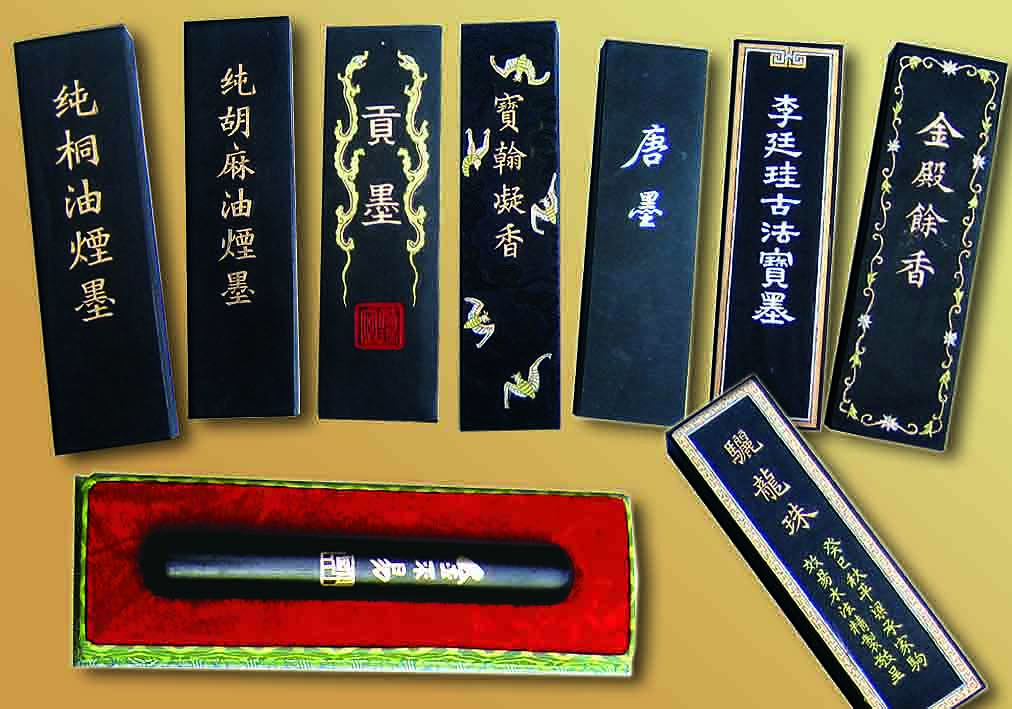 纯桐油煙墨
纯胡麻油煙墨
貢墨
寶翰凝香
唐墨
李廷珪古法寶墨
金殿餘香
驪龍珠
癸巳秋平梁承家駒
效易水法精製敬呈
不易